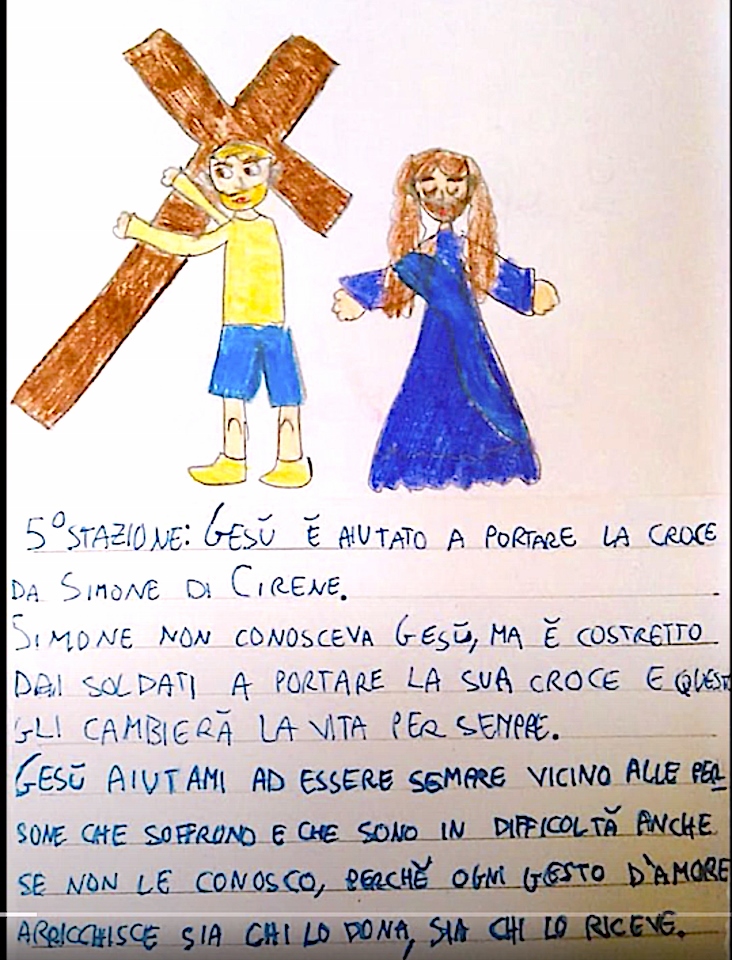 5° STAZIONE: GESŬ Ĕ AIUTATO A PORTARE LA CROCE
DA SIMONE DI CIRENE.
SIMONE NON CONOSCEVA GESŬ, MA Ĕ COSTRETTO
DAI SOLDATI A PORTARE LA SUA CROCE E QUEST
GLI CAMBIERĂ LA VITA PER SEMPRE.
GESŬ AIUTAMI AD ESSERE SEMPRE VICINO ALLE PER_
SONE CHE SOFFRONO E CHE SONO IN DIFFICOLTĂ ANCHE
SE NON LE CONOSCO, PERCHĔ OGNI GESTO D'AMORE
ARRICCHISCE SIA CHI LO DONA, SIA CHI LO RICEVE.